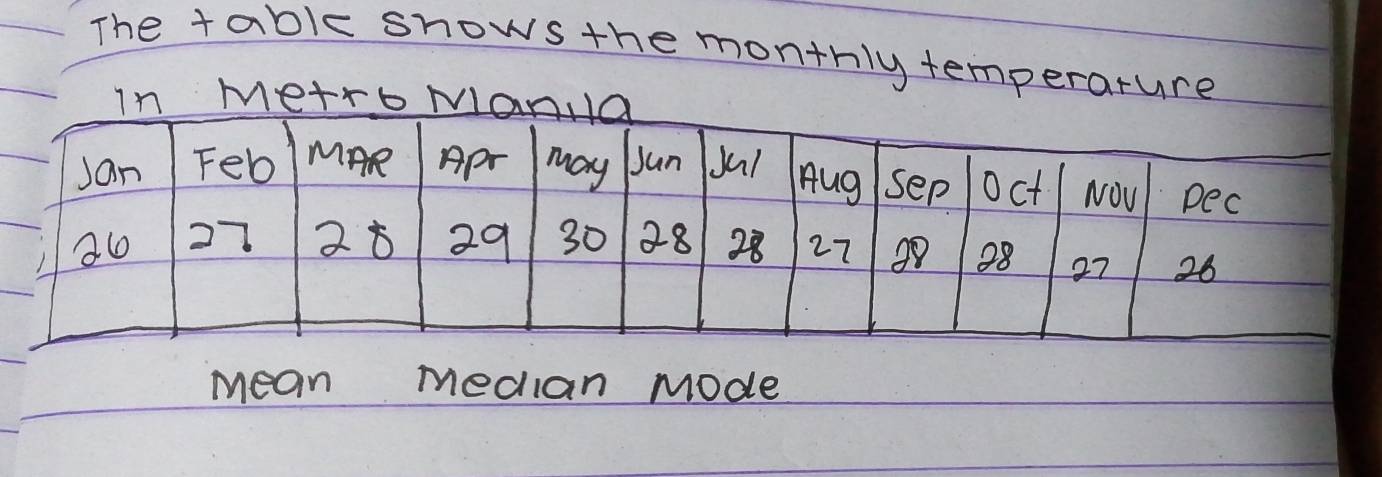 The table shows the monthly temperature
in Metro Manila
Jan Feb MAR Apr May Jun Jul Aug Sep Oct Nov Dec
26 27 28 29 30 28 28 27 28 28 27 26
Mean Median Mode